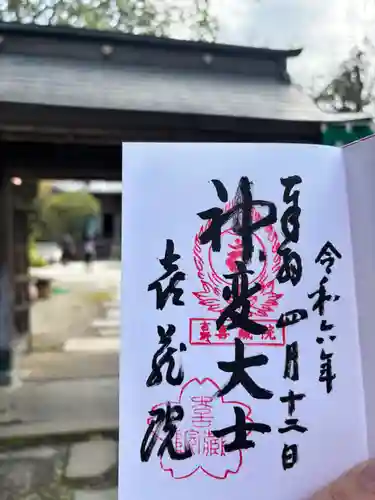 令和六年
奉拝 四月十二日
神変大士
喜蔵院
喜蔵院